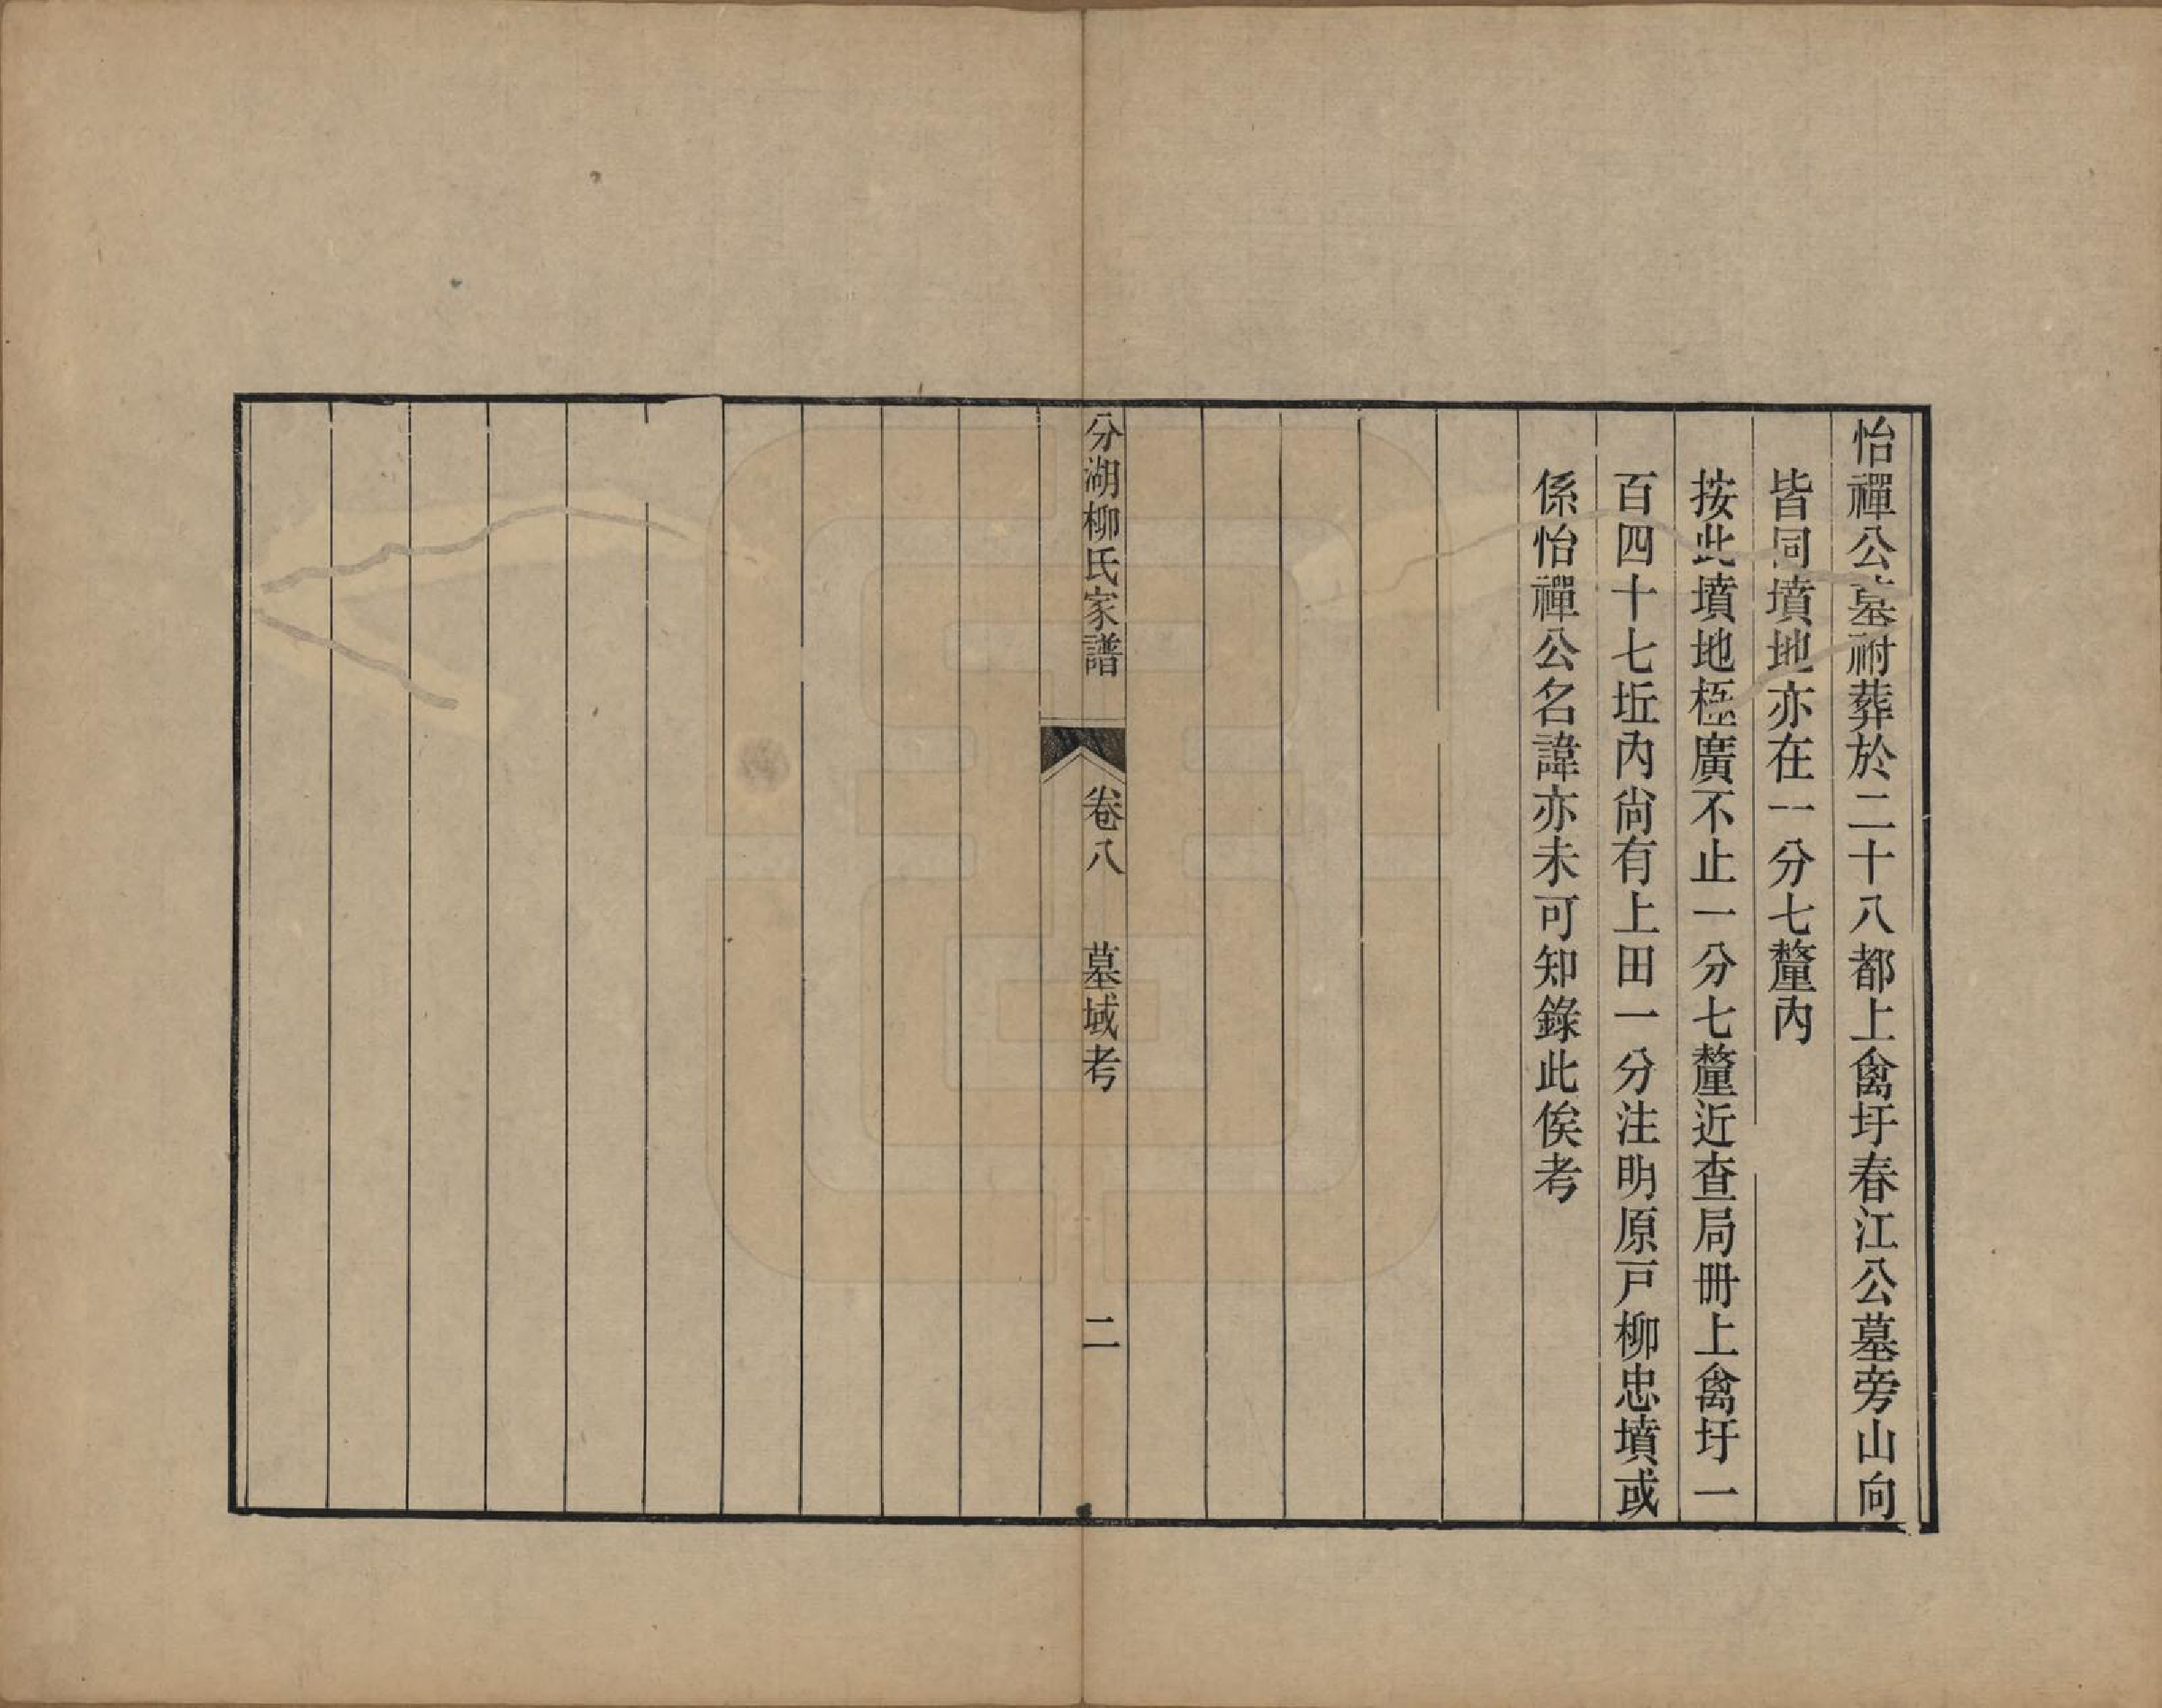 怡禪公墓祔葬於二十八都上禽圩春江公墓旁山向
皆同墳地亦在一分七釐內
按此墳地極廣不止一分七釐近查局冊上禽圩一
百四十七坵內尙有上田一分注明原戸柳忠墳或
係怡禪公名諱亦未可知錄此俟考
分湖柳氏家譜
卷八
墓域考
二